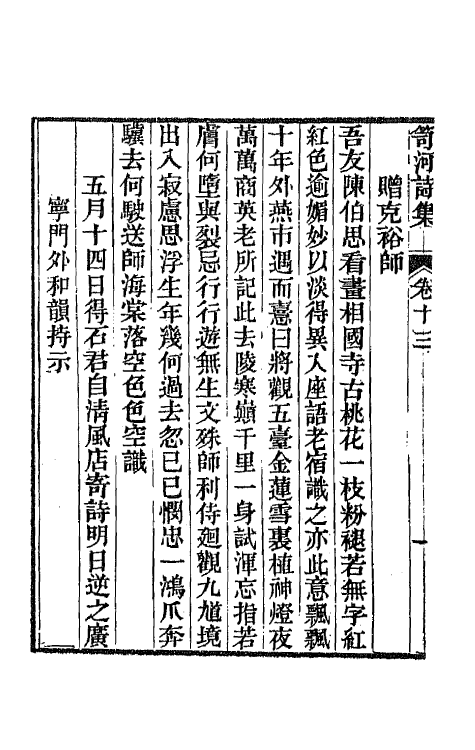 笥河詩集 卷十三 一
贈克裕師
吾友陳伯思看畫相國寺古桃花一枝粉褪若無字紅
紅色逾媚妙以淡得異入座語老宿讖之亦此意飄飄
十年外燕市遇而憙曰將觀五臺金蓮雪裏植神燈夜
萬萬商英老所記此去陵寒巔千里一身試渾忘指若
膚何墮與裂忌行行遊無生文殊師利侍迴觀九馗境
出入寂慮思浮生年幾何過去忽已已憫忠一鴻爪奔
驥去何駛送師海棠落空色色空識
五月十四日得石君自清風店寄詩明日逆之廣
寧門外和韻持示